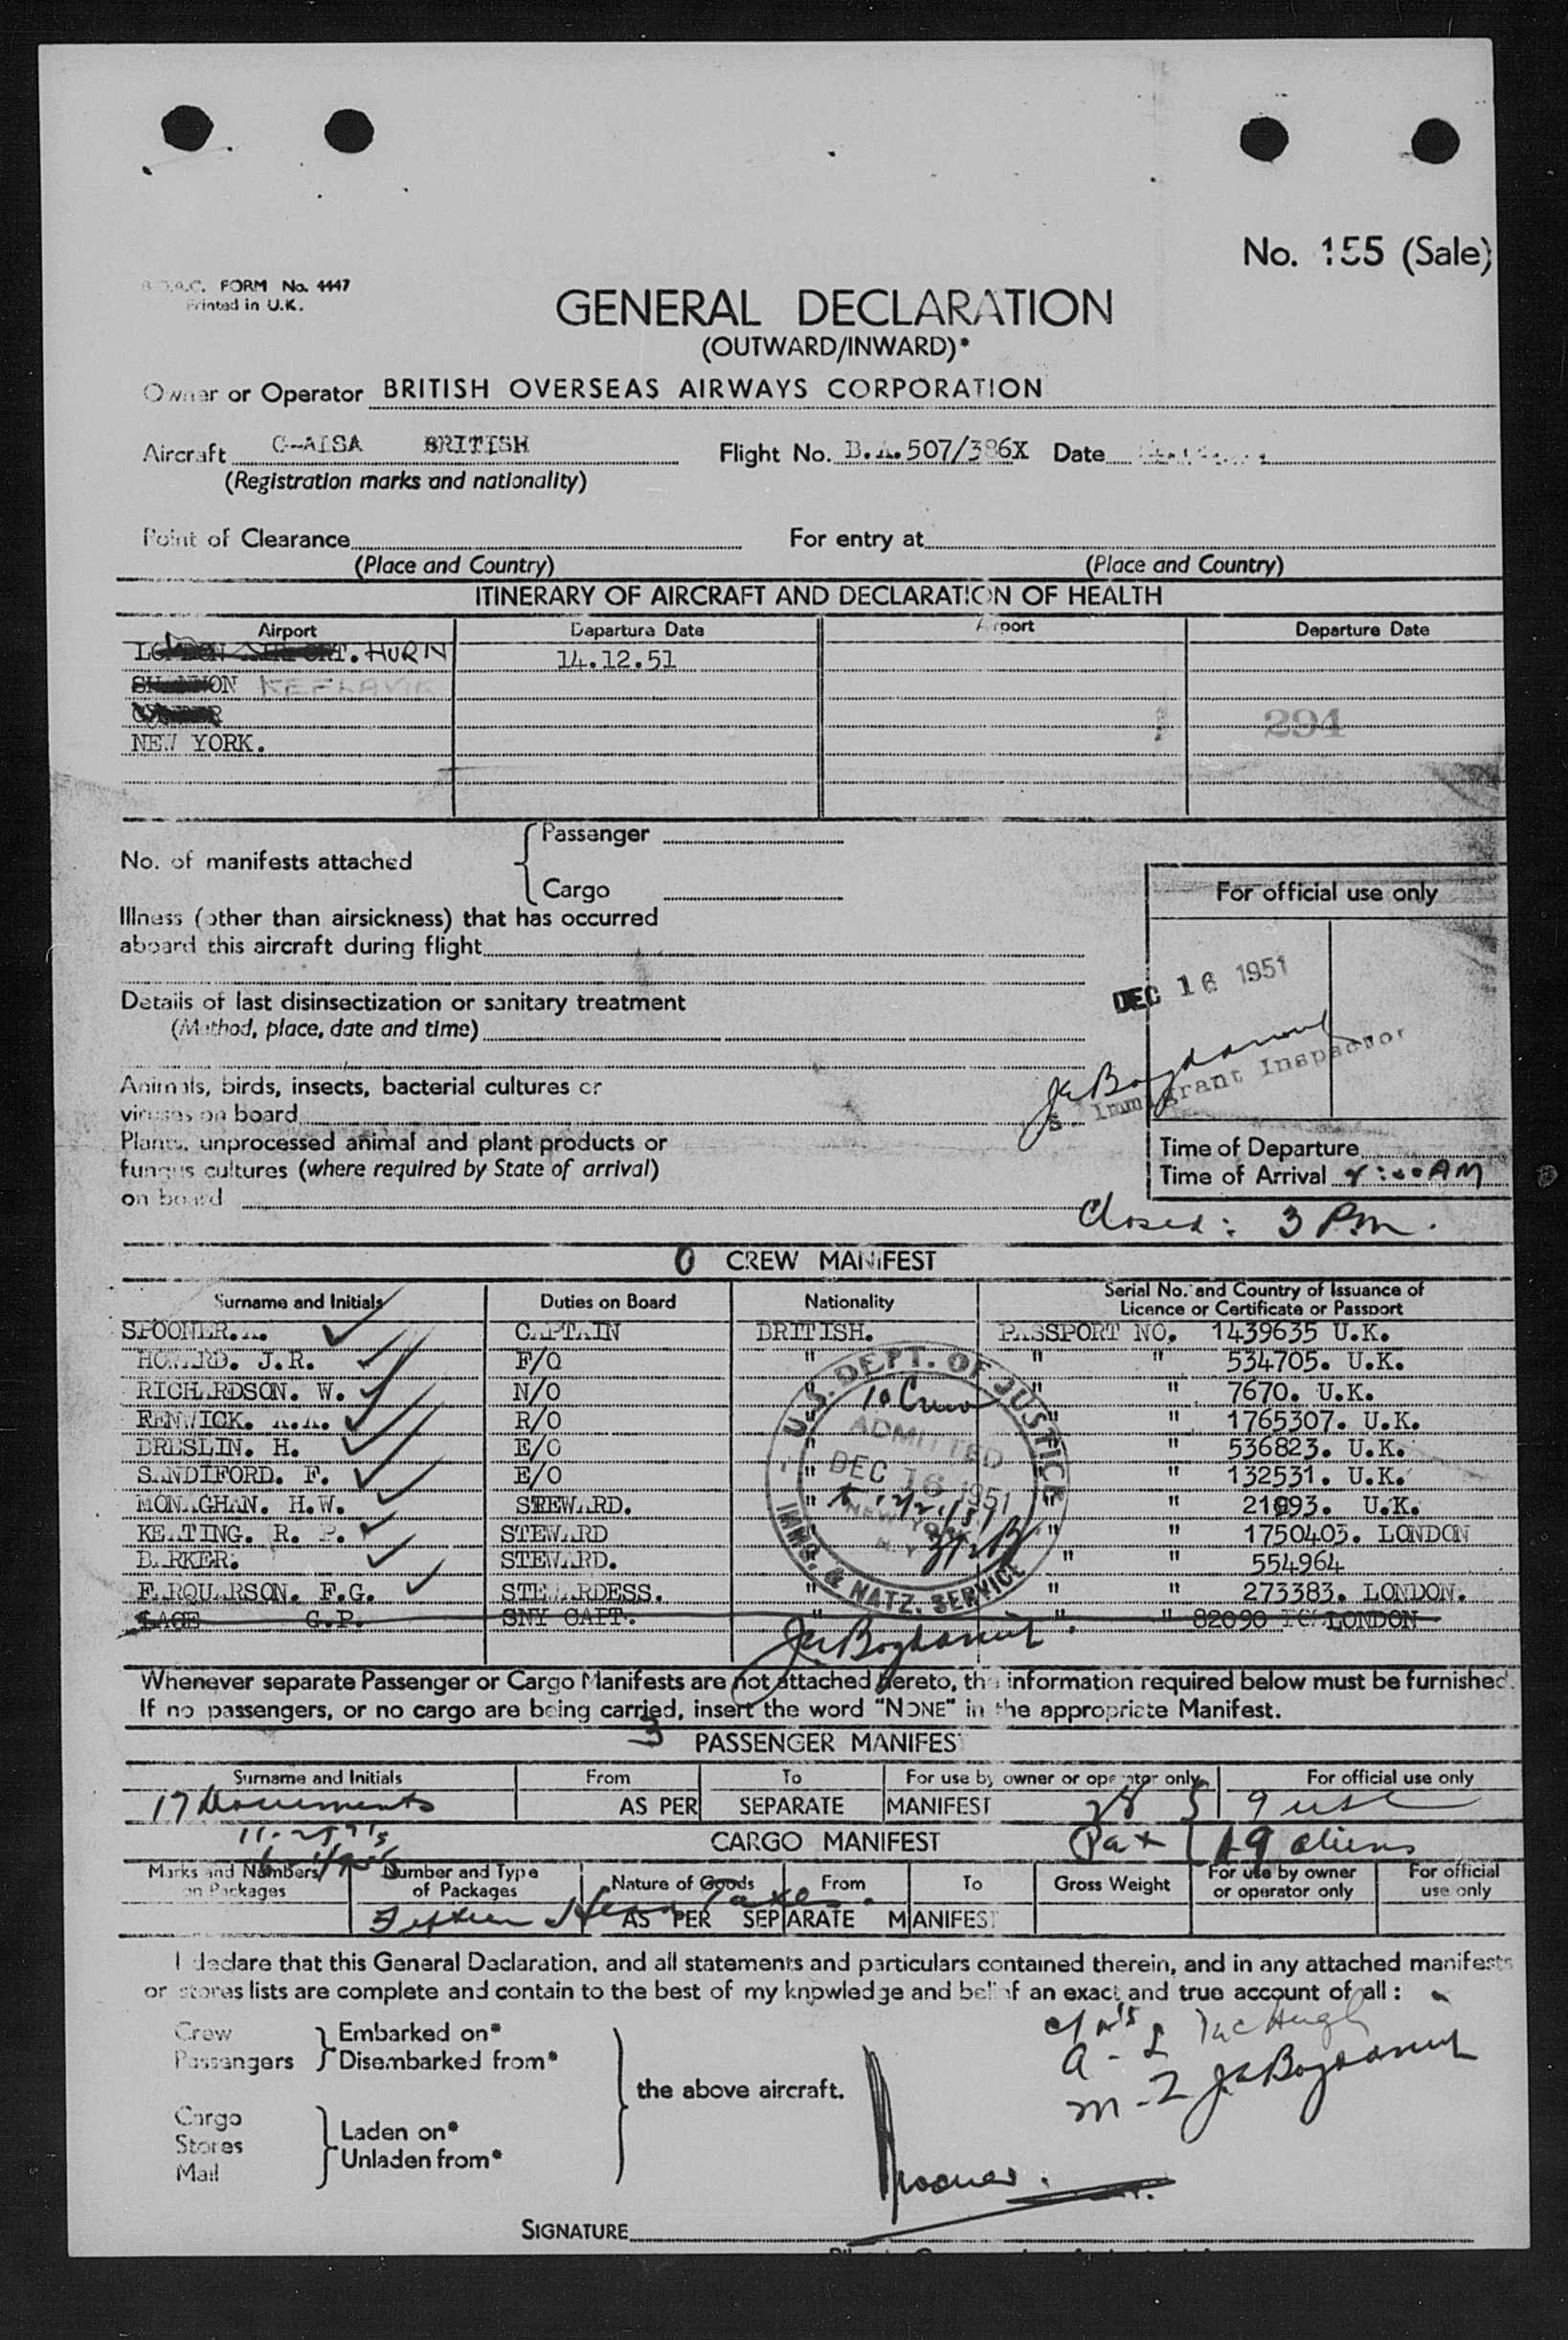 No. 155 (Sale)
B.O.A.C. FORM No. 4447
Printed in U.K.
GENERAL DECLARATION
(OUTWARD/INWARD)*
Owner or Operator BRITISH OVERSEAS AIRWAYS CORPORATION
Aircraft BRITISH Flight No. B.A.507/386X Date
(Registration marks and nationality)
Point of Clearance For entry at
(Place and Country) (Place and Country)
ITINERARY OF AIRCRAFT AND DECLARATION OF HEALTH
Airport Departure Date Airport Departure Date
LONDON AIRPORT. HURN 14.12.51
SHANNON KEFLAVIK
294
NEW YORK.
No. of manifests attached
Passenger
Cargo
For official use only
Illness (other than airsickness) that has occurred
aboard this aircraft during flight
DEC 16 1951
Details of last disinsectization or sanitary treatment
(Method, place, date and time)
Immigrant Inspector
Animals, birds, insects, bacterial cultures or
viruses on board
Plants, unprocessed animal and plant products or
fungus cultures (where required by State of arrival)
on board
Time of Departure
Time of Arrival AM
Closed: 3 P.m.
0 CREW MANIFEST
Surname and Initials Duties on Board Nationality Serial No. and Country of Issuance of
Licence or Certificate or Passport
SPOONER.A. CAPTAIN BRITISH. PASSPORT NO. 1439635 U.K.
HOWARD. J.R. F/O " " " 534705. U.K.
RICHARDSON. W. N/O " " " 7670. U.K.
FENWICK. R/O " " " 1765307. U.K.
BRESLIN. H. E/O " " " 536823. U.K.
SANDIFORD. F. E/O " " " 132531. U.K.
MONAGHAN. H.W. STEWARD. " " " 21893. U.K.
KEATING. R. P. STEWARD " " " 1750403. LONDON
BARKER. STEWARD. " " " 554964
FARQUARSON. F.G. STEWARDESS. " " " 273383. LONDON.
G.P. SNY CAPT. " " " 82090 LONDON
U.S. DEPT. OF JUSTICE
10 Crew
ADMITTED
DEC 16 1951
NEW YORK
N.Y.
IMMG. & NATZ. SERVICE
Whenever separate Passenger or Cargo Manifests are not attached hereto, the information required below must be furnished.
If no passengers, or no cargo are being carried, insert the word "NONE" in the appropriate Manifest.
3 PASSENGER MANIFEST
Surname and Initials From To For use by owner or operator only For official use only
17 Documents AS PER SEPARATE MANIFEST 28 9 usc
CARGO MANIFEST Pax 19 aliens
Marks and Numbers on Packages Number and Type of Packages Nature of Goods From To Gross Weight For use by owner or operator only For official use only
Fifteen Head Taxes. AS PER SEPARATE MANIFEST
I declare that this General Declaration, and all statements and particulars contained therein, and in any attached manifests
or stores lists are complete and contain to the best of my knowledge and belief an exact and true account of all:
Crew Embarked on*
Passengers Disembarked from*
the above aircraft.
Cargo
Stores Laden on*
Mail Unladen from*
Spooner.
SIGNATURE